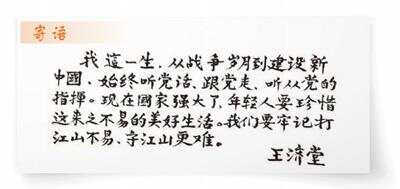 寄语
我這一生，从战争岁月到建设新
中國，始终听党话、跟党走、听从党的
指揮。现在國家强大了，年轻人要珍惜
这来之不易的美好生活。我们要牢记打
江山不易、守江山更难。
王济堂